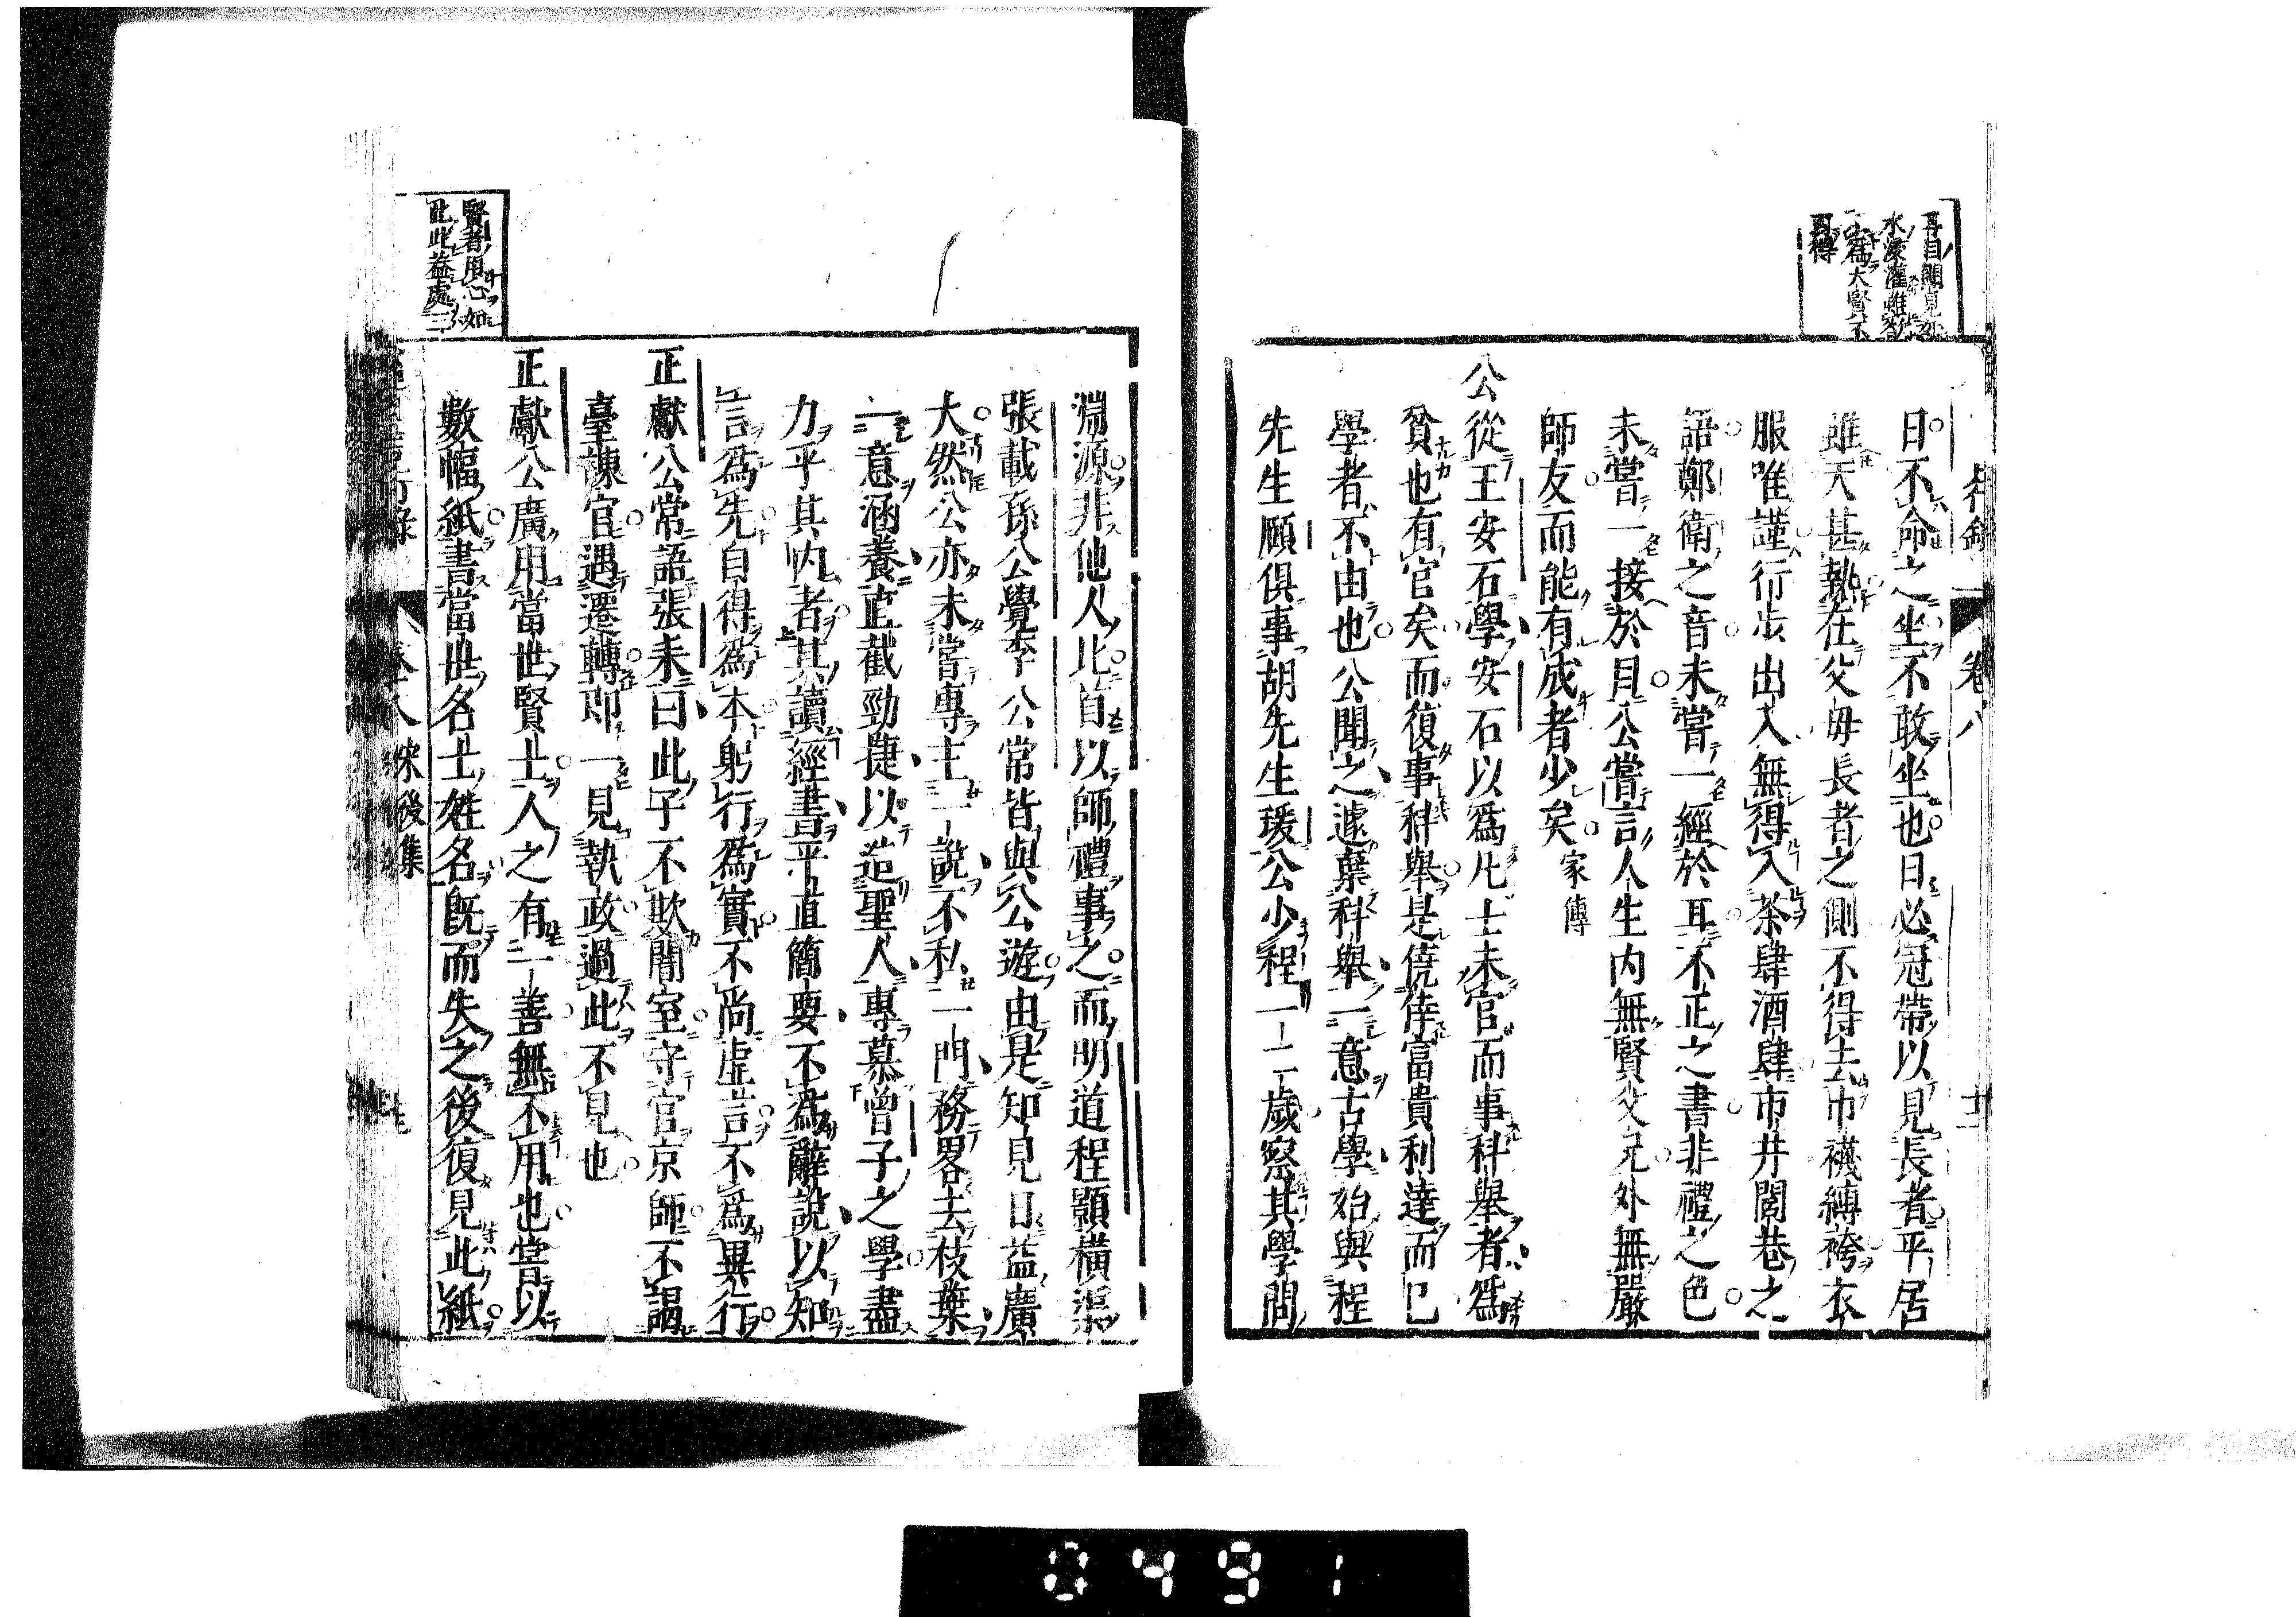 卷八
日不命之坐不敢坐也日必冠帶以見長者平居
雖天甚熱在父母長者之側不得去巾襪縛袴衣
服唯謹行步出入無得入茶肆酒肆市井閭巷之
語鄭衛之音未嘗一經於耳不正之書非禮之色
未嘗一接於目公嘗言人生内無賢父兄外無嚴
師友而能有成者少矣 家傳
公從王安石學安石以爲凡士未官而事科舉者爲
貧也有官矣而復事科舉是僥倖富貴利達而已
學者不由也公聞之遽棄科舉一意古學始與程
先生頤俱事胡先生瑗公少程一二歲察其學問
淵源非他人比首以師禮事之而明道程顥橫渠
張載孫公覺李公常皆與公遊由是知見日益廣
大然公亦未嘗專主一說不私一門務畧去枝葉
一意涵養直截勁捷以造聖人專慕曾子之學盡
力乎其内者其讀經書平直簡要不爲辭說以知
言爲先自得爲本躬行爲實不尚虛言不爲異行
正獻公常語張耒曰此子不欺闇室守官京師不謁
臺諫官遇遷轉即一見執政過此不見也
正獻公廣用當世賢士人之有一善無不用也嘗以
數幅紙書當世名士姓名既而失之後復見此紙
賢者用心如
此此益處三
宋後集
0491